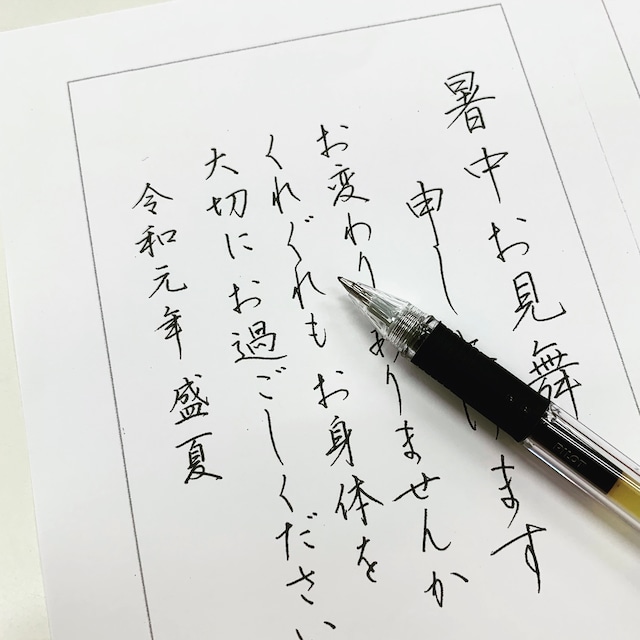 暑中お見舞
申し げます
お変わりありませんか
くれぐれもお身体を
大切にお過ごしください
令和元年 盛夏
PILOT